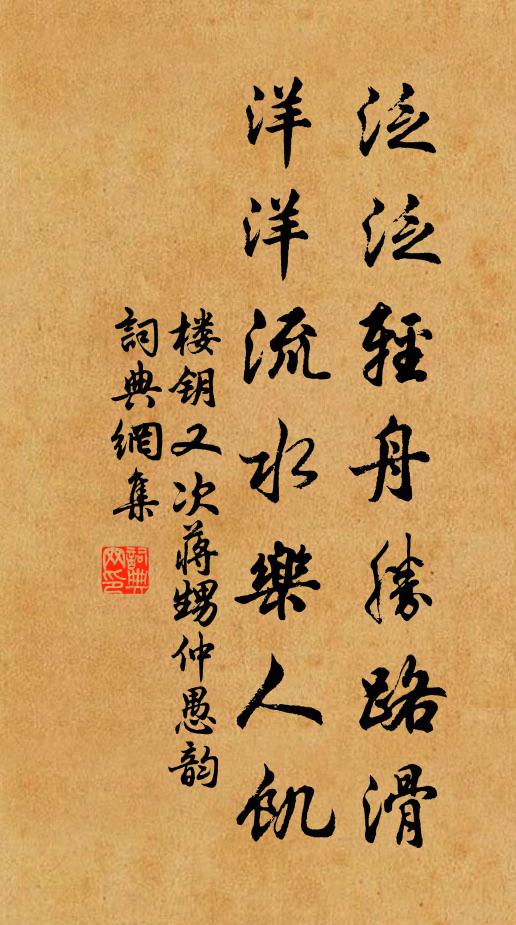 泛泛輕舟勝路滑
洋洋流水樂人飢
楼钥又次蒋甥仲愚韵
詞典網集
詞典网印